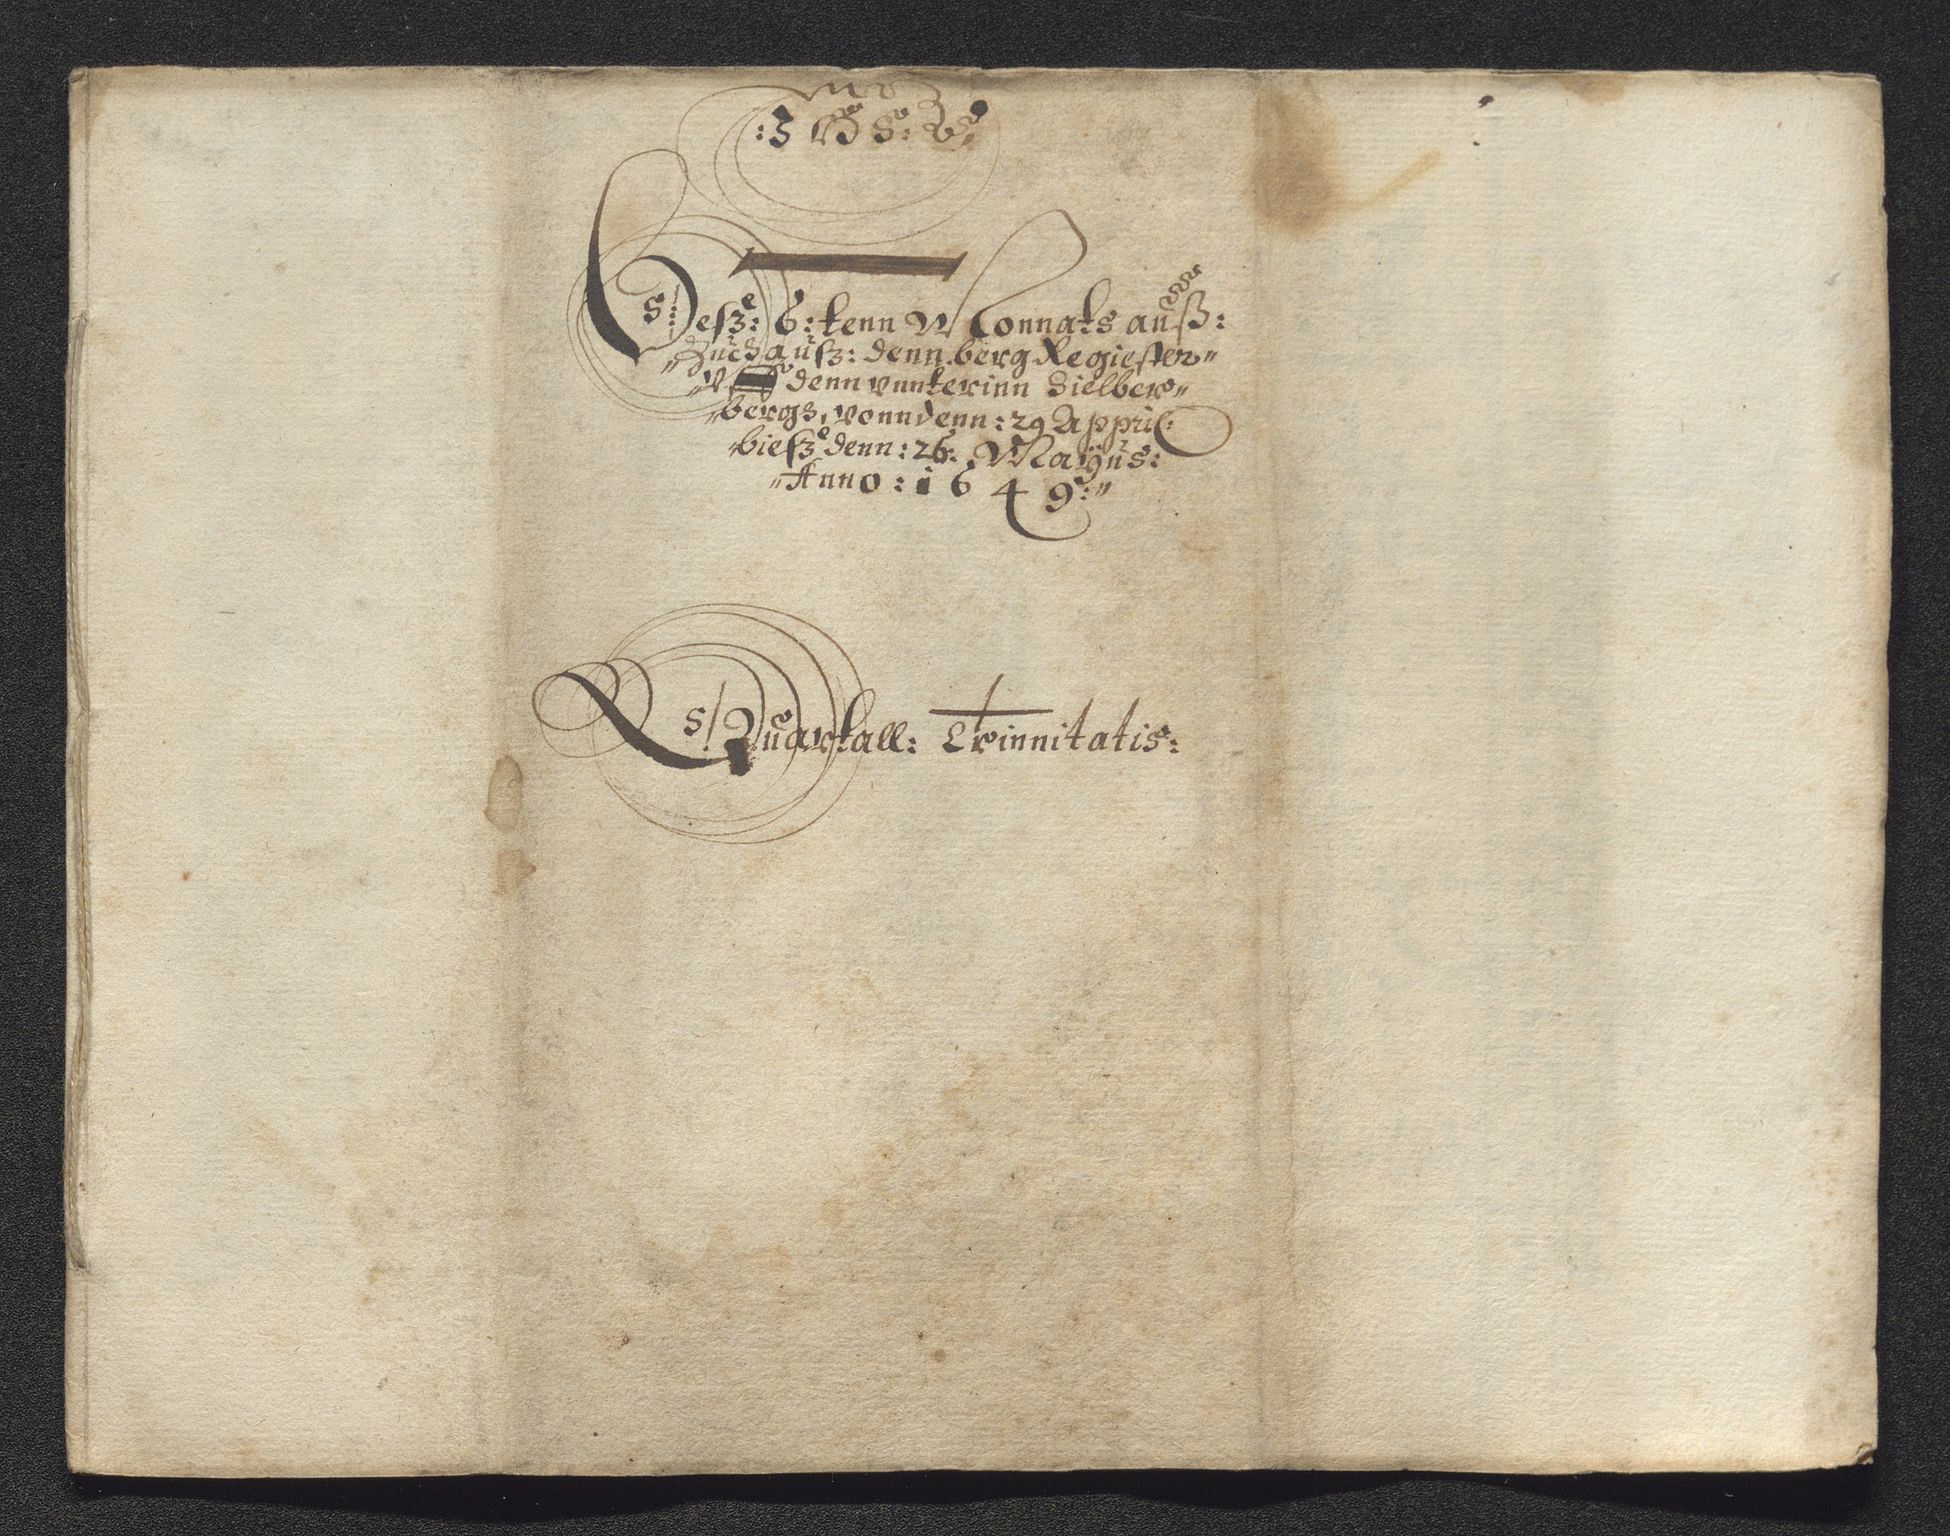 Desz: 6: tenn Monnats auß:
Zuchausz: denn berg Regiester
denn vnnterinn Sielber
bergs, vonn denn: 29 Appril:
biesz denn: 26: Mayus:
Anno: 1649:
Quartall: Trinnitatis: